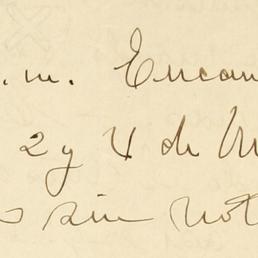 .m. Encan
2 y 4 de M
s sin not